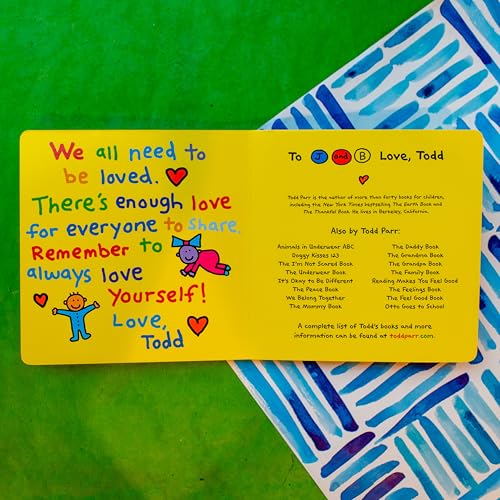 We all need to
be loved.
There's enough love
for everyone to share.
Remember to
always love
Yourself!
Love,
Todd
To J and B Love, Todd
Todd Parr is the author of more than forty books for children,
including the New York Times bestselling The Earth Book and
The Thankful Book. He lives in Berkeley, California.
Also by Todd Parr:
Animals in Underwear ABC
Doggy Kisses 123
The I'm Not Scared Book
The Underwear Book
It's Okay to Be Different
The Peace Book
We Belong Together
The Mommy Book
The Daddy Book
The Grandma Book
The Grandpa Book
The Family Book
Reading Makes You Feel Good
The Feelings Book
The Feel Good Book
Otto Goes to School
A complete list of Todd's books and more
information can be found at toddparr.com.